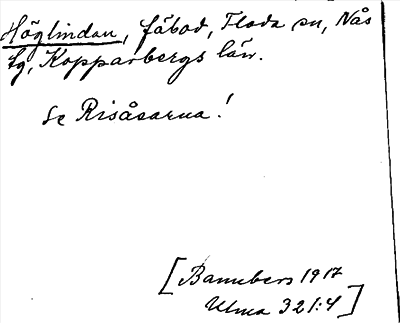 Höglindan, fäbod, Floda sn, Nås
tg, Kopparbergs län.
Se Risåsarna!
[Bannbers 1917
Ulma 321:4]